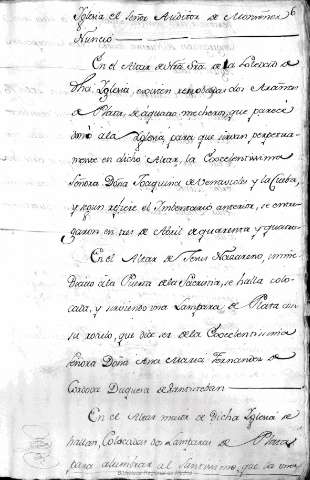 6
Iglesia el Señor Auditor de Monseñor
Nuncio
En el Altar de Ntra. Sra. de la Soledad de
dha. Iglesia, existen
de Plata, de àquatro mecheros, que parece
donó á la Iglesia, para que sirvan perpetua-
mente en dicho Altar, la Excelentissima
Señora Doña Joaquina de Benavides y la Cueba,
y segun refiere el Imbentario anterior, se entre-
garon en tres de Abril de quarenta y quatro
En el Altar de Jesus Nazareno, imme-
diato àla Puerta de la Sacristia, se halla colo-
cada, y sirviendo una Lampara de Plata con
su rotulo, que dice ser de la Excelentissima
Señora Doña Ana Maria Fernandez de
Cordova Duquesa de Santisteban
En el Altar maior de dicha Iglesia se
hallan, Colocadas dos Lamparas de Plata
para alumbrar al Santissimo, que la una
Biblioteca Regional de Madrid